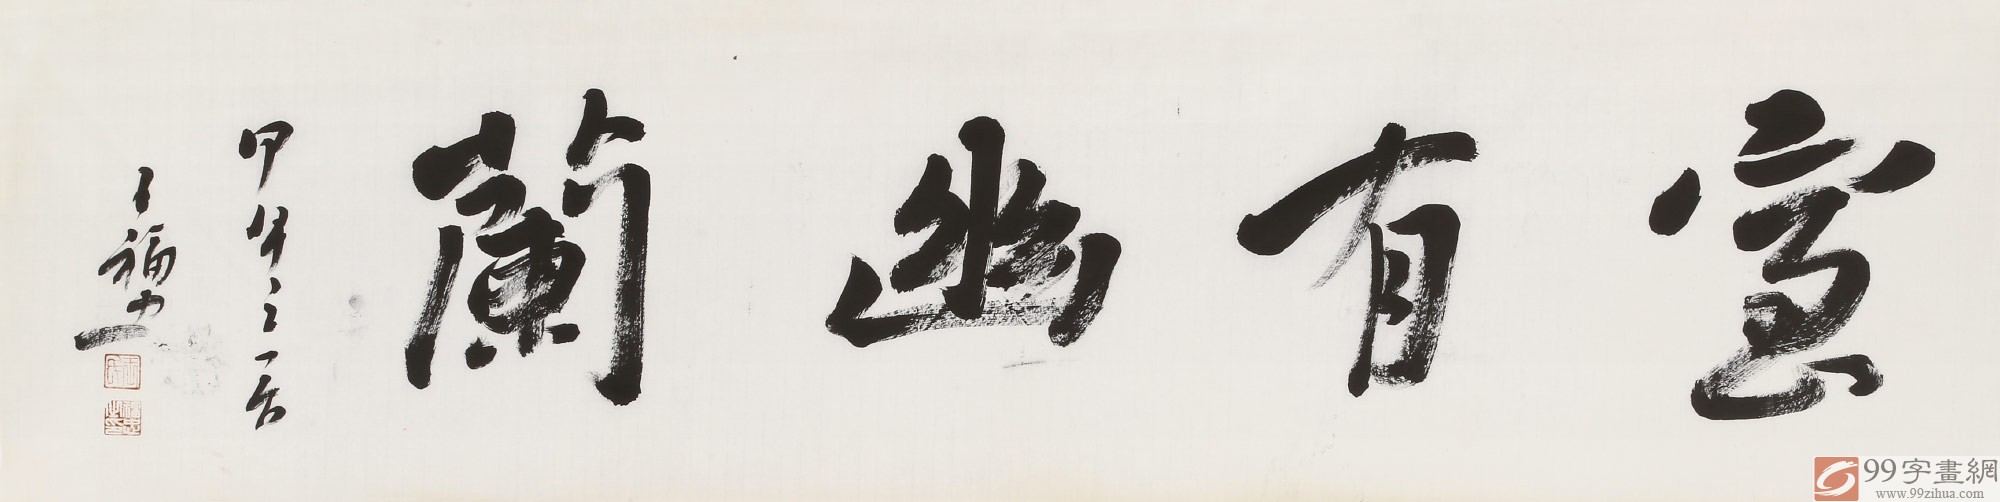 室有幽蘭
甲午之
王福
99字畫網
www.99zihua.com